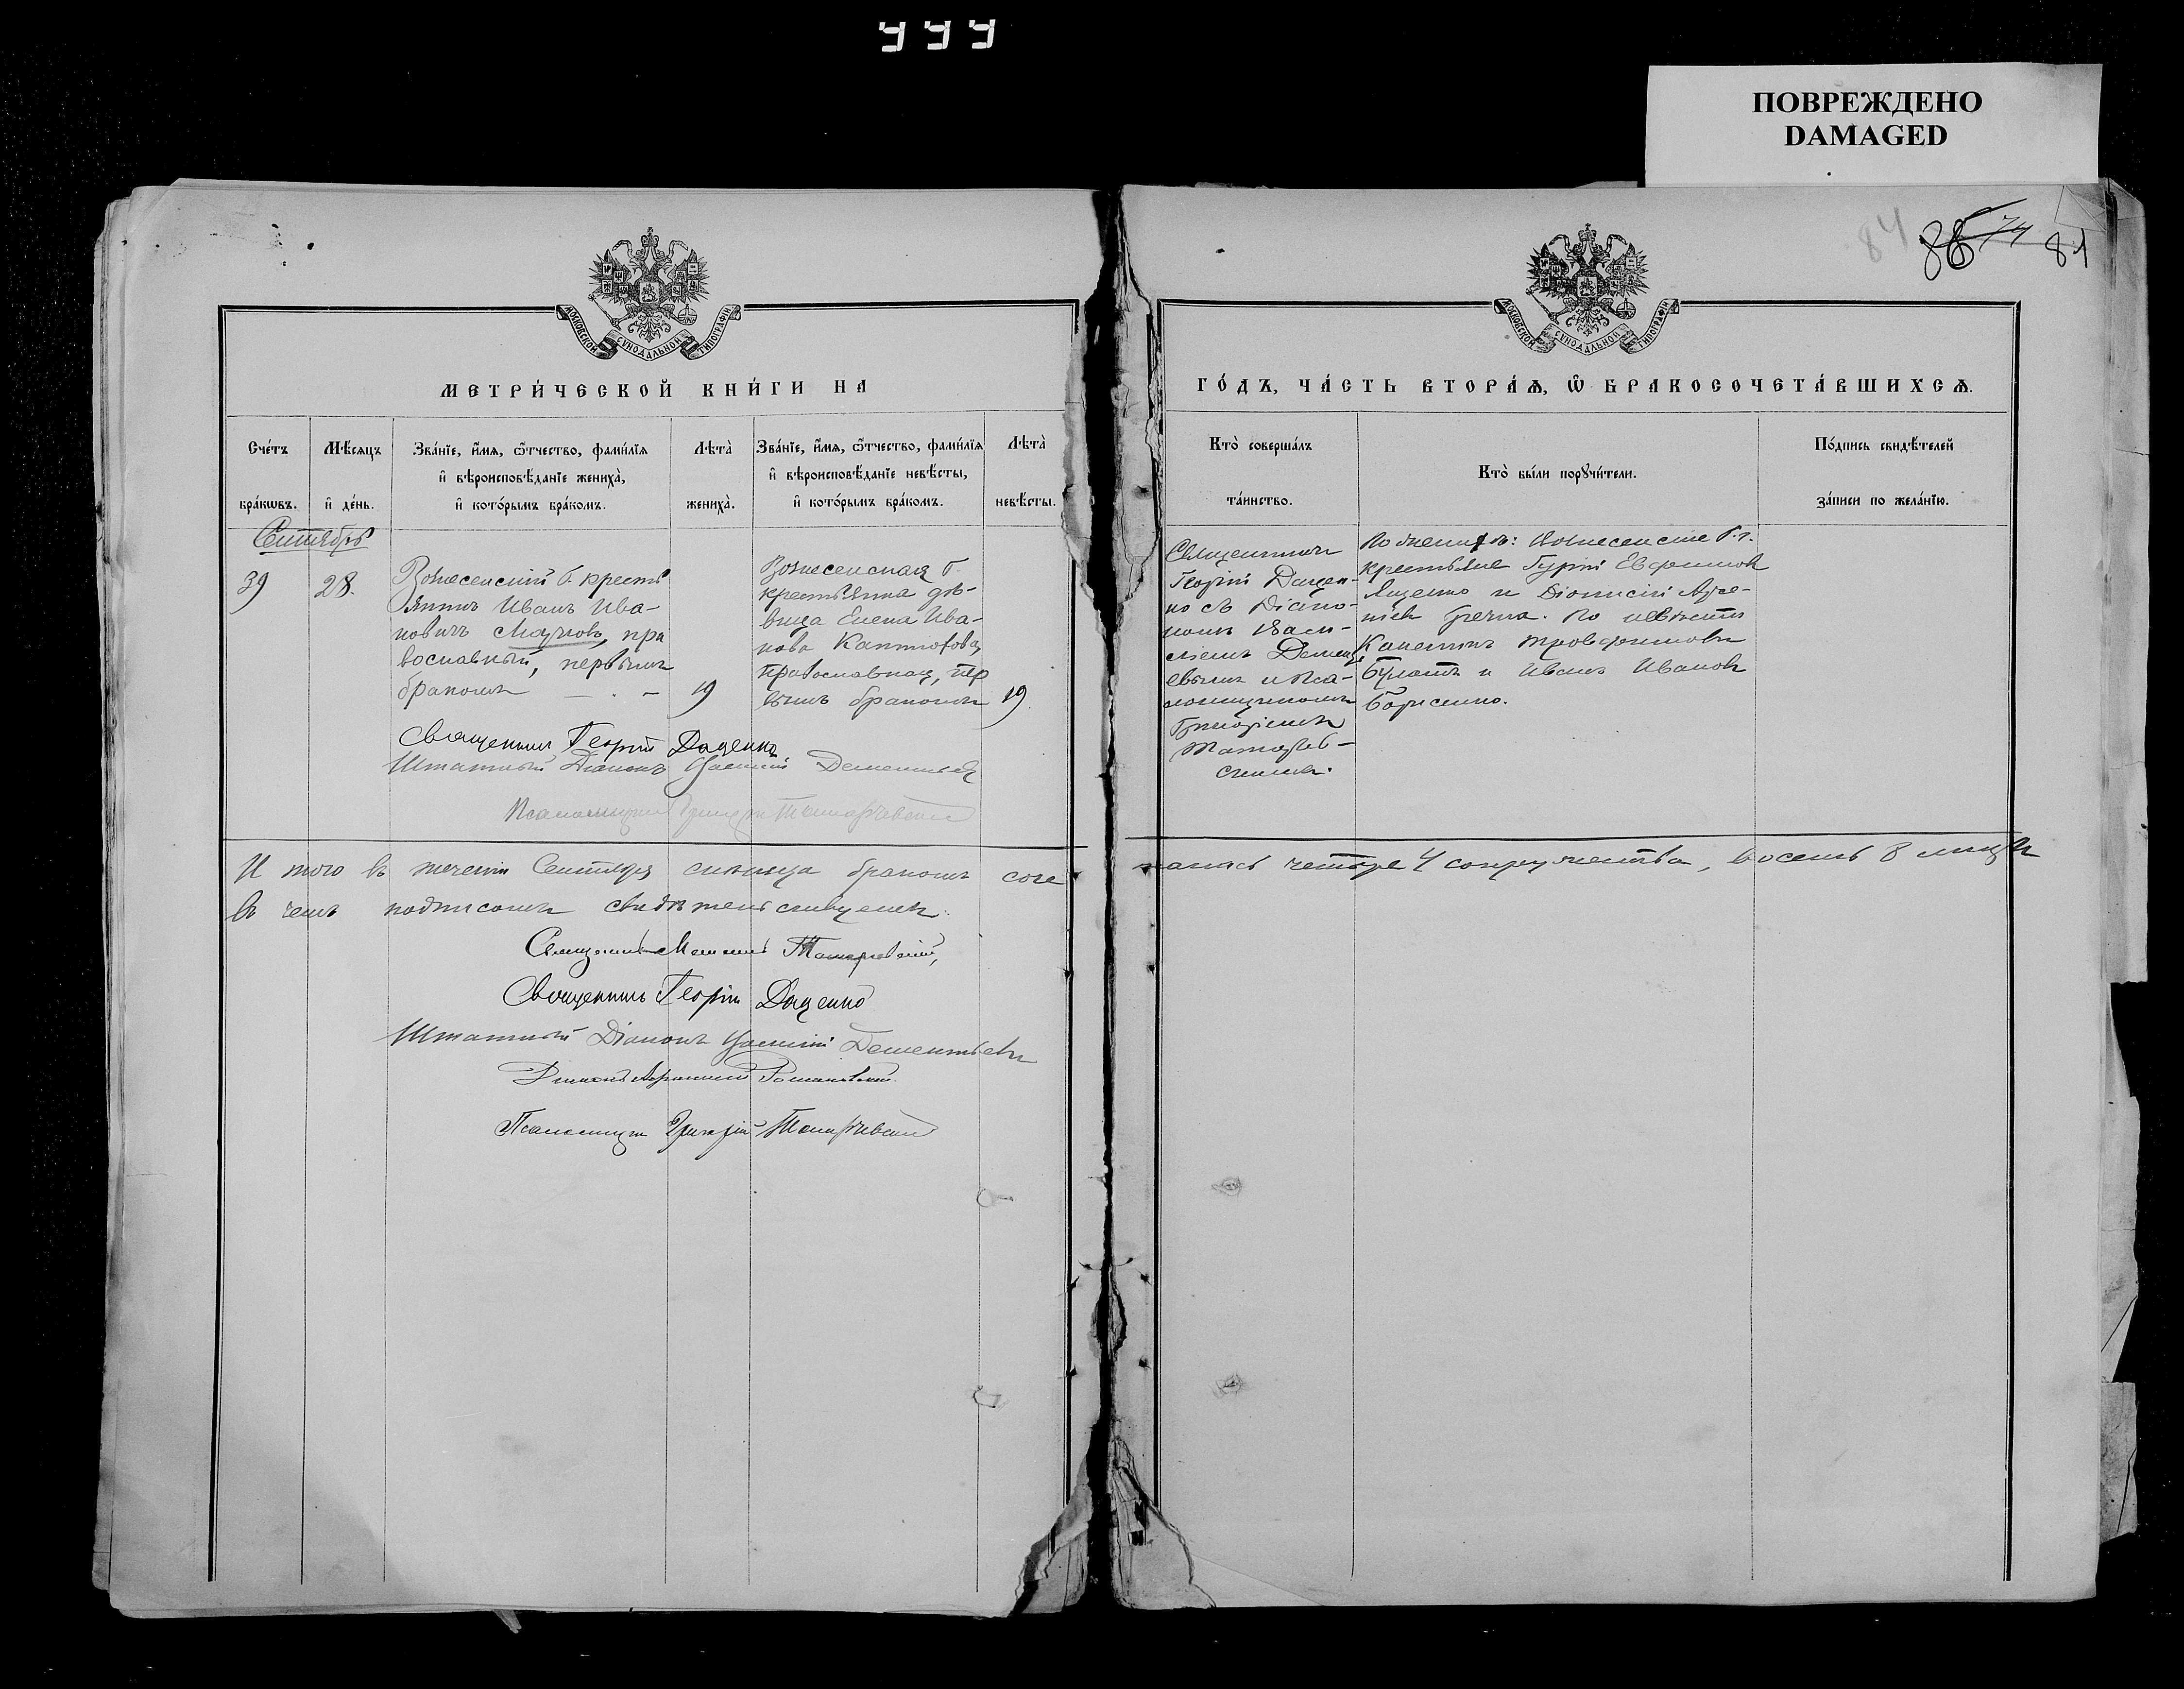 ПОВРЕЖДЕНО
DAMAGED
84
86
74
81
МОСКОВСКОЙ СУНОДАЛЬНОЙ ТИПОГРАФІИ
МОСКОВСКОЙ СУНОДАЛЬНОЙ ТИПОГРАФІИ
МЕТРИ́ЧЕСКОЙ КНИ́ГИ НА
ГО́ДЪ, ЧА́СТЬ ВТОРА́Ѧ, Ѡ҆ БРАКОСОЧЕТА́ВШИХСѦ.
Сче́тъ
бра́кѡвъ.
Мѣ́сѧцъ
и҆ де́нь.
Зва́нїе, и҆́мѧ, ѻ҆́тчество, фами́лїѧ
и҆ вѣроисповѣ́данїе жениха̀,
и҆ кото́рымъ бра́комъ.
Лѣ́та̀
жениха̀.
Зва́нїе, и҆́мѧ, ѻ҆́тчество, фами́лїѧ
и҆ вѣроисповѣ́данїе невѣ́сты,
и҆ кото́рымъ бра́комъ.
Лѣ́та̀
невѣ́сты.
Кто̀ соверша́лъ
та́инство.
Кто̀ бы́ли порꙋчи́тели.
По́дпись свидѣ́телей
за́писи по жела́нїю.
Сентябрь
39
28.
Вознесенскій б. кресть
янинъ Иванъ Ива-
новичъ, пра
вославный, первымъ
бракомъ
19
Вознесенская б.
крестьянка дѣ-
вица Елена Ива-
нова
православная, пер
вымъ бракомъ
19
Священникъ
Георгій Дацен-
ко съ Діако-
номъ Васи-
ліемъ Демент
евымъ и Пса-
ломщикомъ
Григоріемъ
По женихѣ: Вознесенскіе б. г.
крестьяне Гурій Евфимовъ
Яценко и Діонисій
Гречка. По невѣстѣ
Трофимовъ
Булатъ и Иванъ Ивановъ
Борисенко.
Священникъ Георгій Даценко
Штатный Діаконъ Василій Дементьевъ
Псаломщикъ Григорій
И того въ теченіи Сентября мѣсяца бракомъ соче
талось четыре 4 супружества, восемь 8 лицъ
въ чемъ подписомъ свидѣтельствуемъ.
Священникъ
Священникъ Георгій Даценко
Штатный Діаконъ Василій Дементьевъ
Діаконъ Романовскій
Псаломщикъ Григорій